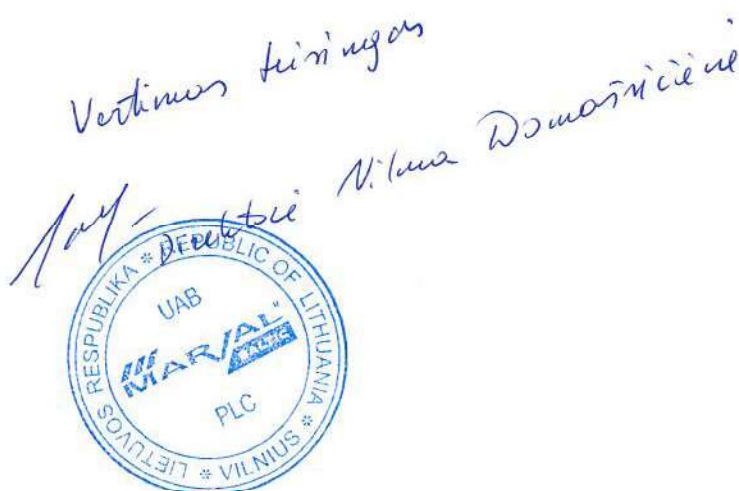 Vertimas teisingas
Direktorė Vilma Domašničienė
LIETUVOS RESPUBLIKA * REPUBLIC OF LITHUANIA * VILNIUS *
UAB
MARVAL
PLC